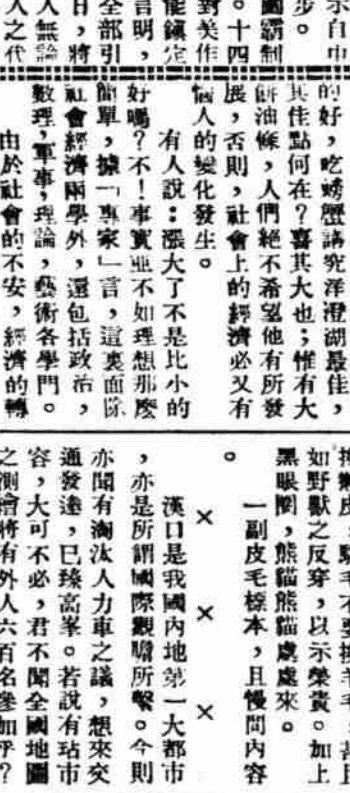 示自中
步。
國霸制
。十四
對美作
能鎮定
言明，
全部引
日，將
人無論
人之代
的好，吃螃蟹講究洋澄湖最佳，
其佳點何在？喜其大也；惟有大
餅油條，人們絕不希望他有所發
展，否則，社會上的經濟必又有
惱人的變化發生。
有人說：漲大了不是比小的
好嗎？不！事實並不如理想那麼
簡單，據「專家」言，這裏面除
社會經濟兩學外，還包括政治，
數理，軍事，理論，藝術各學門。
由於社會的不安，經濟的轉
皮；驢毛不要換羊毛；甚且
如野獸之反穿，以示榮貴。加上
黑眼圈，熊貓熊貓處處來。
一副皮毛標本，且慢問內容
。
× × ×
漢口是我國內地第一大都市
，亦是所謂國際觀瞻所繫。今則
亦聞有淘汰人力車之議，想來交
通發達，已臻高峯。若說有玷市
容，大可不必，君不聞全國地圖
之測繪將有外人六百名參加乎？